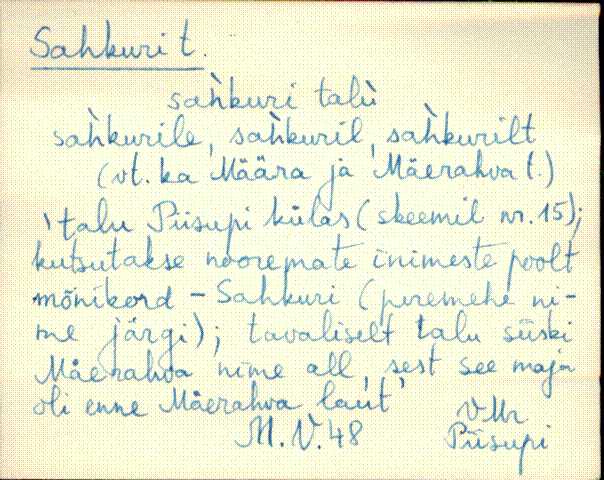 Sahkuri t.
sah̀kuri talù
sah̀kurile, sah̀kuril, sah̀kurilt
(vt. ka Määra ja Mäerahva t.)
ˋtalu Piisupi külas (skeemil nr. 15);
kutsutakse nooremate inimeste poolt
mõnikord – Sahkuri (peremehe ni-
me järgi); tavaliselt talu siiski
Mäerahva nime all, sest see maja
oli enne Mäerahva laut
M. V. 48
VMr
Piisupi